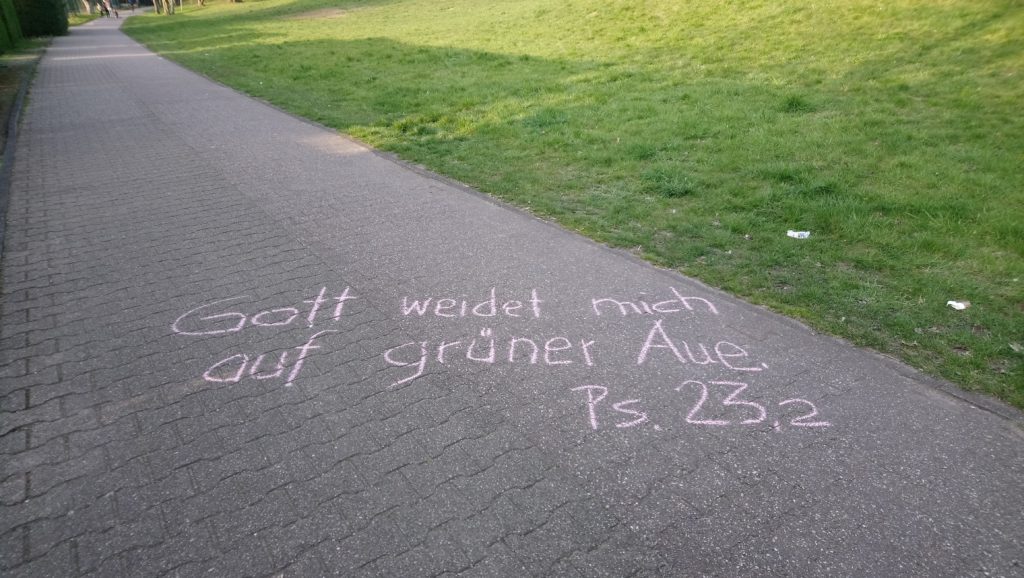 Gott weidet mich
auf grüner Aue.
Ps. 23,2